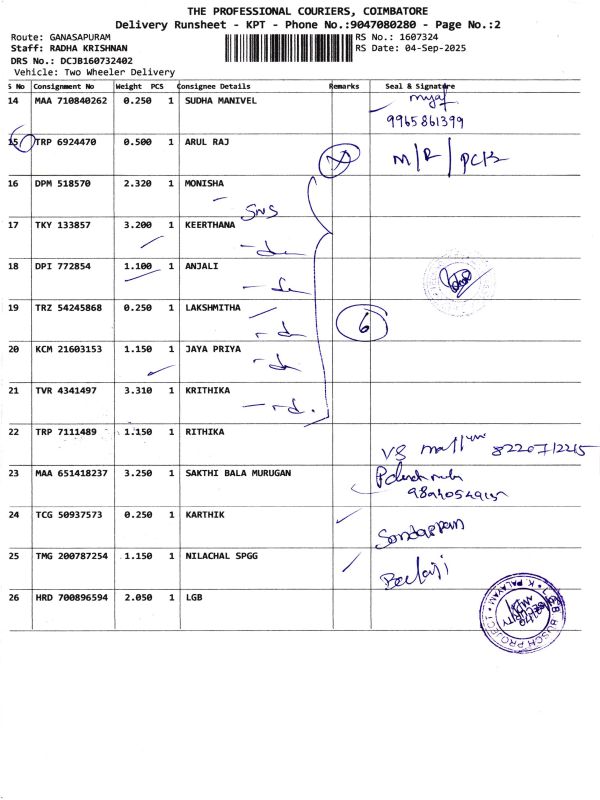 THE PROFESSIONAL COURIERS, COIMBATORE
Delivery Runsheet - KPT - Phone No.:9047080280 - Page No.:2
Route: GANASAPURAM RS No.: 1607324
Staff: RADHA KRISHNAN RS Date: 04-Sep-2025
DRS No.: DCJB160732402
Vehicle: Two Wheeler Delivery
S No Consignment No Weight PCS Consignee Details Remarks Seal & Signature
14 MAA 710840262 0.250 1 SUDHA MANIVEL
9965861399
15 TRP 6924470 0.500 1 ARUL RAJ M/R/
16 DPM 518570 2.320 1 MONISHA
SNS
17 TKY 133857 3.200 1 KEERTHANA
18 DPI 772854 1.100 1 ANJALI
19 TRZ 54245868 0.250 1 LAKSHMITHA 6
20 KCM 21603153 1.150 1 JAYA PRIYA
21 TVR 4341497 3.310 1 KRITHIKA
22 TRP 7111489 1.150 1 RITHIKA
VS 8220712215
23 MAA 651418237 3.250 1 SAKTHI BALA MURUGAN
24 TCG 50937573 0.250 1 KARTHIK
25 TMG 200787254 1.150 1 NILACHAL SPGG
Balaji
26 HRD 700896594 2.050 1 LGB